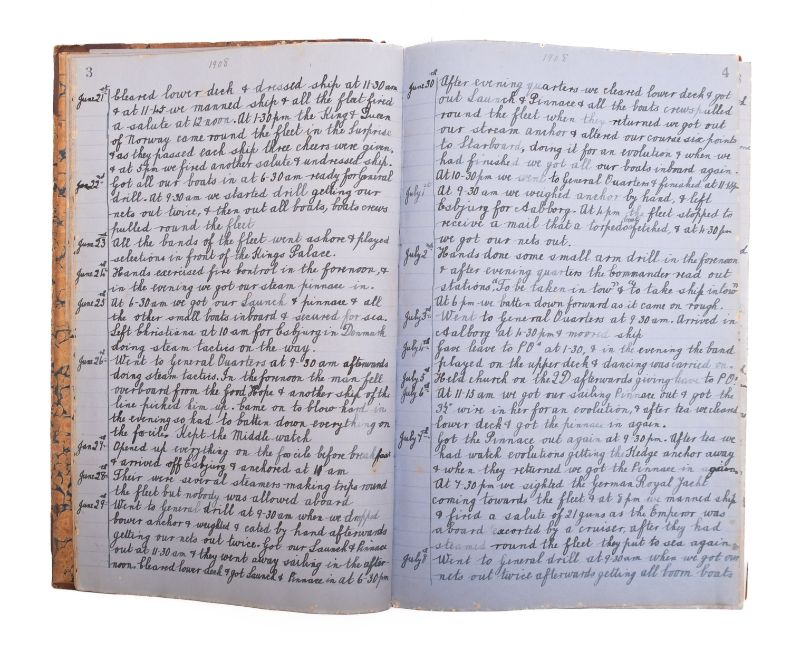 3
1908
June 21st Cleared lower deck & dressed ship at 11-30 am
& at 11-45 we manned ship & all the fleet fired
a salute at 12 noon. At 1-30 pm the King & Queen
of Norway came round the fleet in the Surprise
& as they passed each ship three cheers were given,
& at 5 pm we fired another salute & undressed ship.
June 22nd Got all our boats in at 6-30 am ready for General
drill. At 9-30 am we started drill getting our
nets out twice, & then out all boats, boats crews
pulled round the fleet
June 23rd All the bands of the fleet went ashore & played
selections in front of the Kings Palace.
June 24th Hands exercised fire control in the forenoon, &
in the evening we got our steam pinnace in.
June 25th At 6-30 am we got our Launch & pinnace & all
the other small boats inboard & secured for sea.
Left Christiana at 10 am for Esbjurg in Denmark
doing steam tactics on the way.
June 26th Went to General Quarters at 9-30 am afterwards
doing steam tactics. In the forenoon the man fell
overboard from the Good Hope & another ship of the
line picked him up. Came on to blow hard in
the evening so had to batten down everything on
the fo'cile. Kept the Middle watch
Jun 27th Opened up everything on the fo'cile before breakfast
& arrived off Esbjurg & anchored at 10 am
June 28th Their were several steamers making trips round
the fleet but nobody was allowed aboard.
June 29th Went to General drill at 9-30 am when we dropped
bower anchor & weighed & cated by hand afterwards
getting our nets out twice. Got our Launch & Pinnace
out at 11-30 am & they went away sailing in the after-
noon. Cleared lower deck & got Launch & Pinnace in at 6-30 pm
4
1908
June 30th After evening quarters we cleared lower deck & got
out Launch & Pinnace & all the boats crews pulled
round the fleet when they returned we got out
our stream anchor & altered our course six points
to Starboard, doing it for an evolution & when we
had finished we got all our boats inboard again.
At 10-30 pm we went to General Quarters & finished at 11-45 pm
July 1st At 9-30 am we weighed anchor by hand, & left
Esbjurg for Aalborg. At 4 pm the fleet stopped to
receive a mail that a torpedo boat fetched, & at 4-30 pm
we got our nets out.
July 2nd Hands done some small arm drill in the forenoon
& after evening quarters the Commander read out
stations, To be taken in tow & To take ship in tow
At 6 pm we batten down forward as it came on rough.
July 3rd Went to General Quarters at 9-30 am. Arrived in
Aalborg at 4-30 pm & moored ship
July 4th Gave leave to POs at 1-30, & in the evening the band
played on the upper deck & dancing was carried on.
July 5th Held church on the 2D afterwards giving leave to POs
July 6th At 11-15 am we got our sailing Pinnace out & got the
3½" wire in her for an evolution, & after tea we cleared
lower deck & got the pinnace in again.
July 7th Got the Pinnace out again at 9-30 pm. After tea we
had watch evolutions getting the Kedge anchor away
& when they returned we got the Pinnace in again.
At 7-30 pm we sighted the German Royal Yacht
coming towards the fleet & at 8 pm we manned ship
& fired a salute of 21 guns as the Emperor was
aboard escorted by a cruiser, after they had
steamed round the fleet they put to sea again.
July 8th Went to General drill at 9-30 am when we got our
nets out twice afterwards getting all boom boats